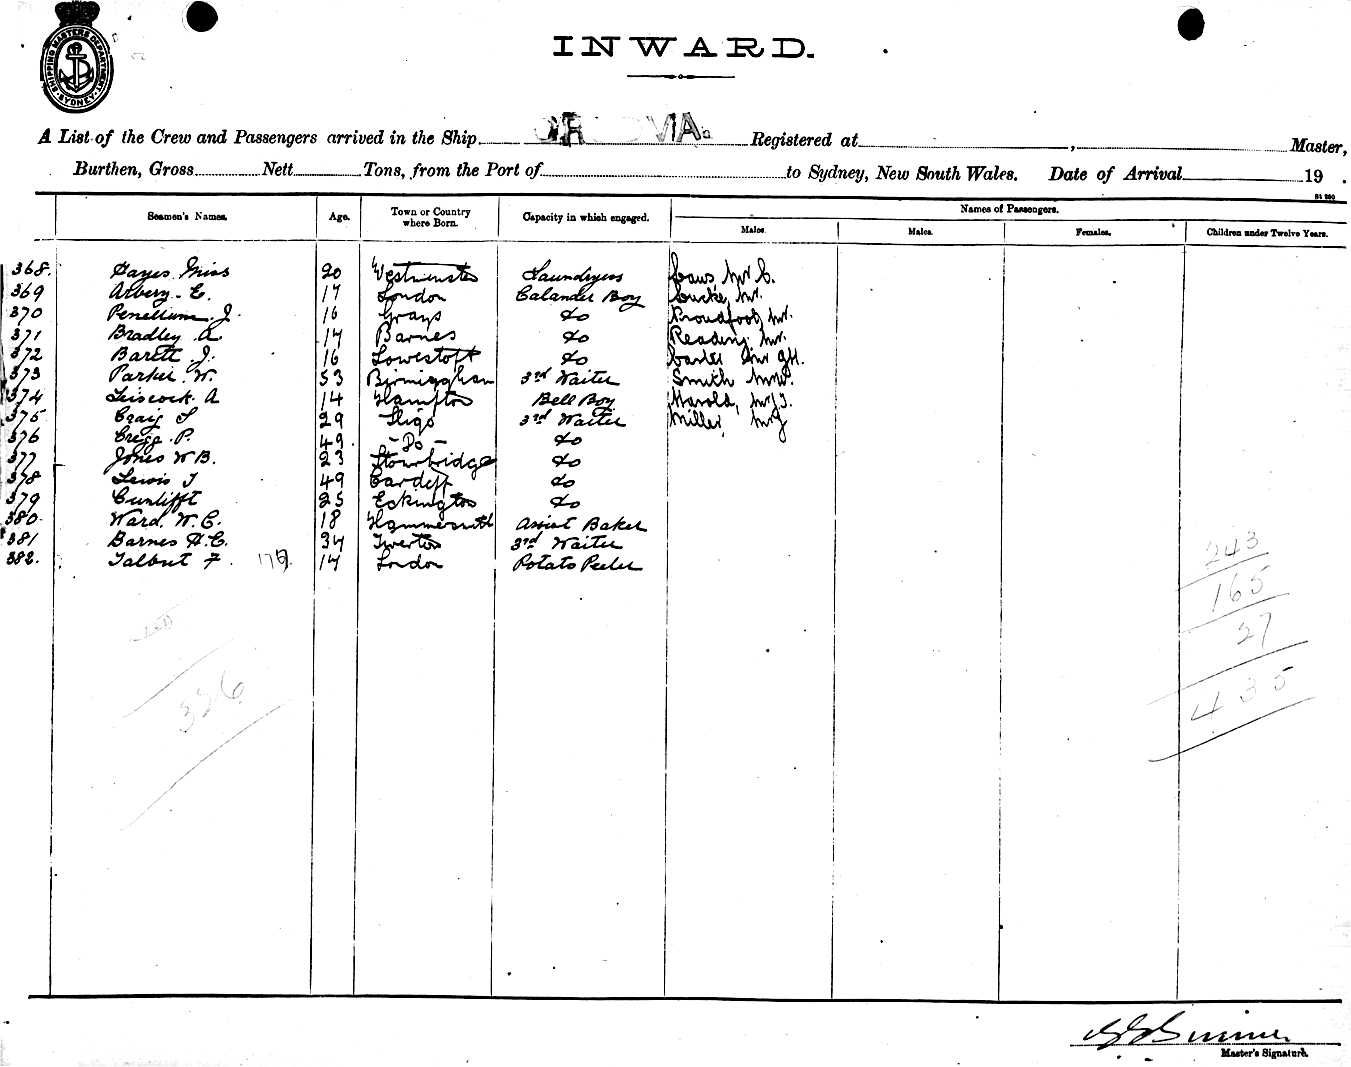 SHIPPING MASTERS DEPARTMENT SYDNEY
INWARD.
A List of the Crew and Passengers arrived in the Ship Registered at , Master,
Burthen, Gross Nett Tons, from the Port of to Sydney, New South Wales. Date of Arrival 19 .
Seamen's Names. Age. Town or Country where Born. Capacity in which engaged. Names of Passengers.
Males. Males. Females. Children under Twelve Years.
368. Hayes Miss 20 Westminster Laundryess Mr C.
369 E. 17 London Calander Boy Mr.
370 J. 16 Grays do Proudfoot, Mr.
371 Bradley A. 14 Barnes do Reading Mr.
372 Barett J. 16 Lowestoft do Mr GH.
373 Parker W. 53 Birmingham 3rd Waiter Smith
374 A 14 Hampton Bell Boy Harold,
375 Craig 29 Sligo 3rd Waiter Miller,
376 P. 49 - Do - do
377 Jones W B. 23 Stourbridge do
378 Lewis 49 Cardiff do
379 Cunlifft 25 Eckington do
380 Ward. W. C. 18 Hammersmith Assist Baker
381 Barnes H. C. 34 Tiverton 3rd Waiter
382. Talbut F. 14 London Potato Peeler
243
165
27
435
326
Master's Signature.